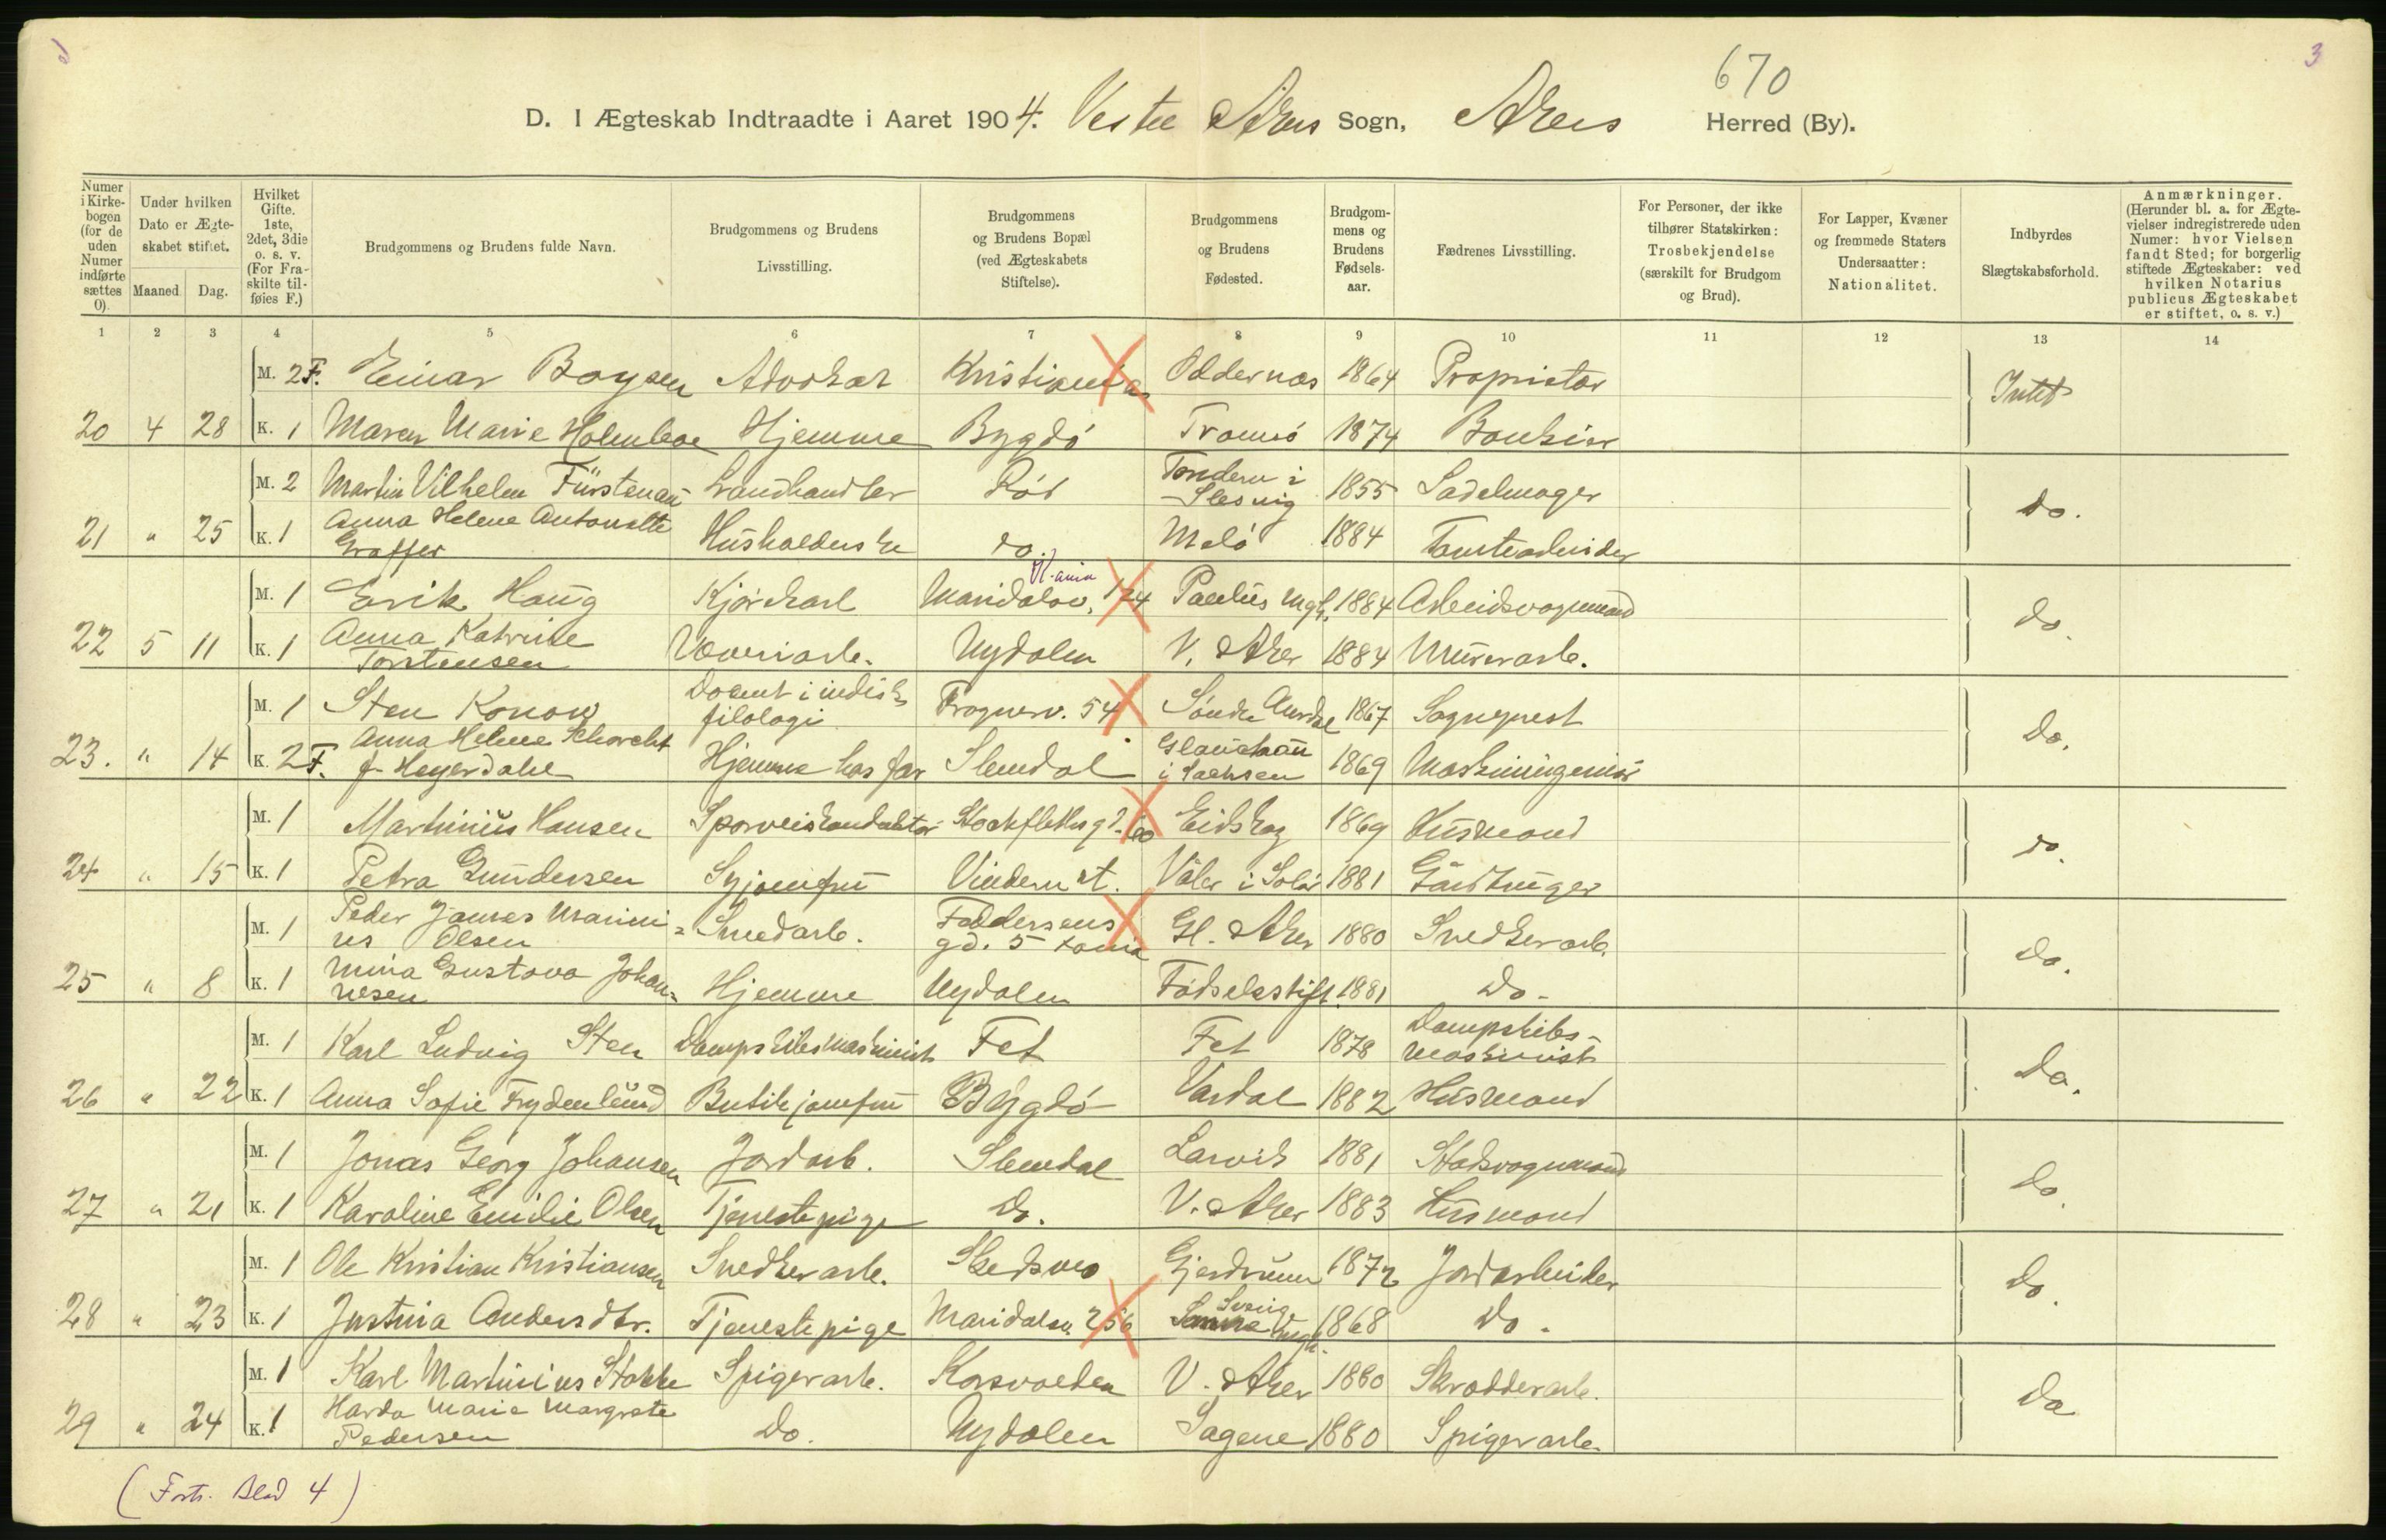 3
670
D. I Ægteskab Indtraadte i Aaret 1904. Vestre Akers Sogn, Akers Herred (By).
Numer i Kirkebogen (for de uden Numer indførte sættes 0).
Under hvilken Dato er Ægteskabet stiftet.
Maaned. Dag.
Hvilket Gifte. 1ste, 2det, 3die o. s. v. (For Fraskilte tilføies F.)
Brudgommens og Brudens fulde Navn.
Brudgommens og Brudens Livsstilling.
Brudgommens og Brudens Bopæl (ved Ægteskabets Stiftelse).
Brudgommens og Brudens Fødested.
Brudgommens og Brudens Fødselsaar.
Fædrenes Livsstilling.
For Personer, der ikke tilhører Statskirken: Trosbekjendelse (særskilt for Brudgom og Brud).
For Lapper, Kvæner og fremmede Staters Undersaatter: Nationalitet.
Indbyrdes Slægtskabsforhold.
Anmærkninger. (Herunder bl. a. for Ægtevielser indregistrerede uden Numer: hvor Vielsen fandt Sted; for borgerlig stiftede Ægteskaber: ved hvilken Notarius publicus Ægteskabet er stiftet, o. s. v.)
1 2 3 4 5 6 7 8 9 10 11 12 13 14
M. 2 F. Einar Boysen Advokat Kristiania Oddernæs 1864 Proprietær Intet
20 4 28 K. 1 Maren Marie Holmboe Hjemme Bygdö Tromsö 1874 Bankier
M. 2 Martin Vilhelm Fürstenau Landhandler Röd Tondern i Slesvig 1855 Sadelmager do.
21 " 25 K. 1 Anna Helene Antonette Graffer Husholderske do. Melö 1884 Tomtearbeider
M. 1 Erik Haug Kjörekarl Maridalsv. 124 K.ania Paulus Mgh. 1884 Arbeidsvognmand do.
22 5 11 K. 1 Anna Katrine Torstensen Væveriarb. Nydalen V. Aker 1884 Murerarb.
M. 1 Sten Konow Docent i indisk filologi Frognerv. 54 Söndre Aurdal 1867 Sogneprest Do.
23. " 14 K. 2 F. Anna Helene Schorcht f. Heyerdahl Hjemme hos far Slemdal Glauchau i Sachsen 1869 Maskiningeniör
M. 1 Martinius Hansen Sporveiskonduktör Stockflethsg. Eidskog 1869 Husmand do.
24 " 15 K. 1 Petra Gundersen Syjomfru Vindern st. Våler i Solör 1881 Gårdbruger
M. 1 Peder James Marinius Olsen Smedarb. Feddersens gd. 5 Kania Gl. Aker 1880 Snedkerarb. Do.
25 " 8 K. 1 Mina Gustava Johannesen Hjemme Nydalen Födselsstift. 1881 Do.
M. 1 Karl Ludvig Sten Dampskibsmaskinist Fet Fet 1878 Dampskibsmaskinist Do.
26 " 22 K. 1 Anna Sofie Frydenlund Butikjomfru Bygdö Vardal 1882 Husmand
M. 1 Jonas Georg Johansen Jordarb. Slemdal Larvik 1881 Stadsvognmand do.
27 " 21 K. 1 Karoline Emilie Olsen Tjenestepige Do. V. Aker 1883 Husmand
M. 1 Ole Kristian Kristiansen Snedkerarb. Skedsmo Gjerdrum 1872 Jordarbeider do.
28 " 23 K. 1 Justina Andersdtr. Tjenestepige Maridalsv. 256 1868 Do.
M. 1 Karl Martinius Stokke Spigerarb. Korsvolden V. Aker 1880 Skrædderarb. Do
29 " 24 K. 1 Harda Marie Margrete Pedersen Do. Nydalen Sagene 1880 Spigerarb.
(Forts. Blad 4)